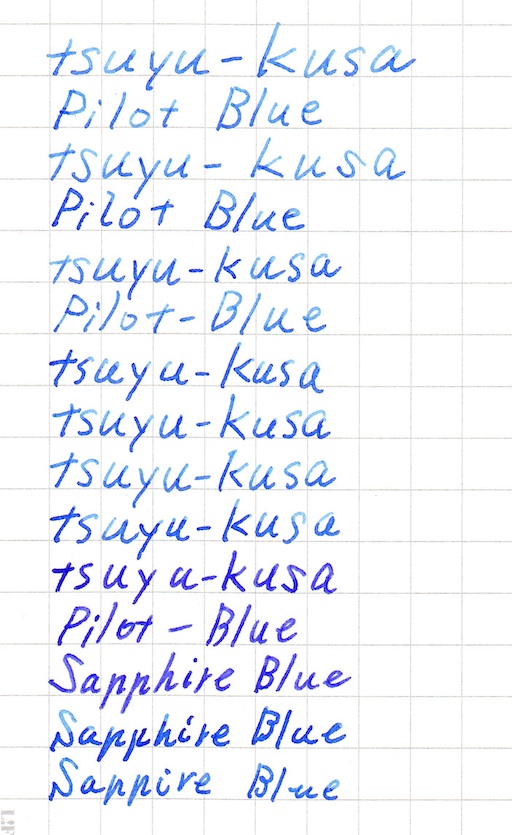 tsuyu-kusa
Pilot Blue
tsuyu-kusa
Pilot Blue
tsuyu-kusa
Pilot-Blue
tsuyu-kusa
tsuyu-kusa
tsuyu-kusa
tsuyu-kusa
tsuyu-kusa
Pilot-Blue
Sapphire Blue
Sapphire Blue
Sappire Blue